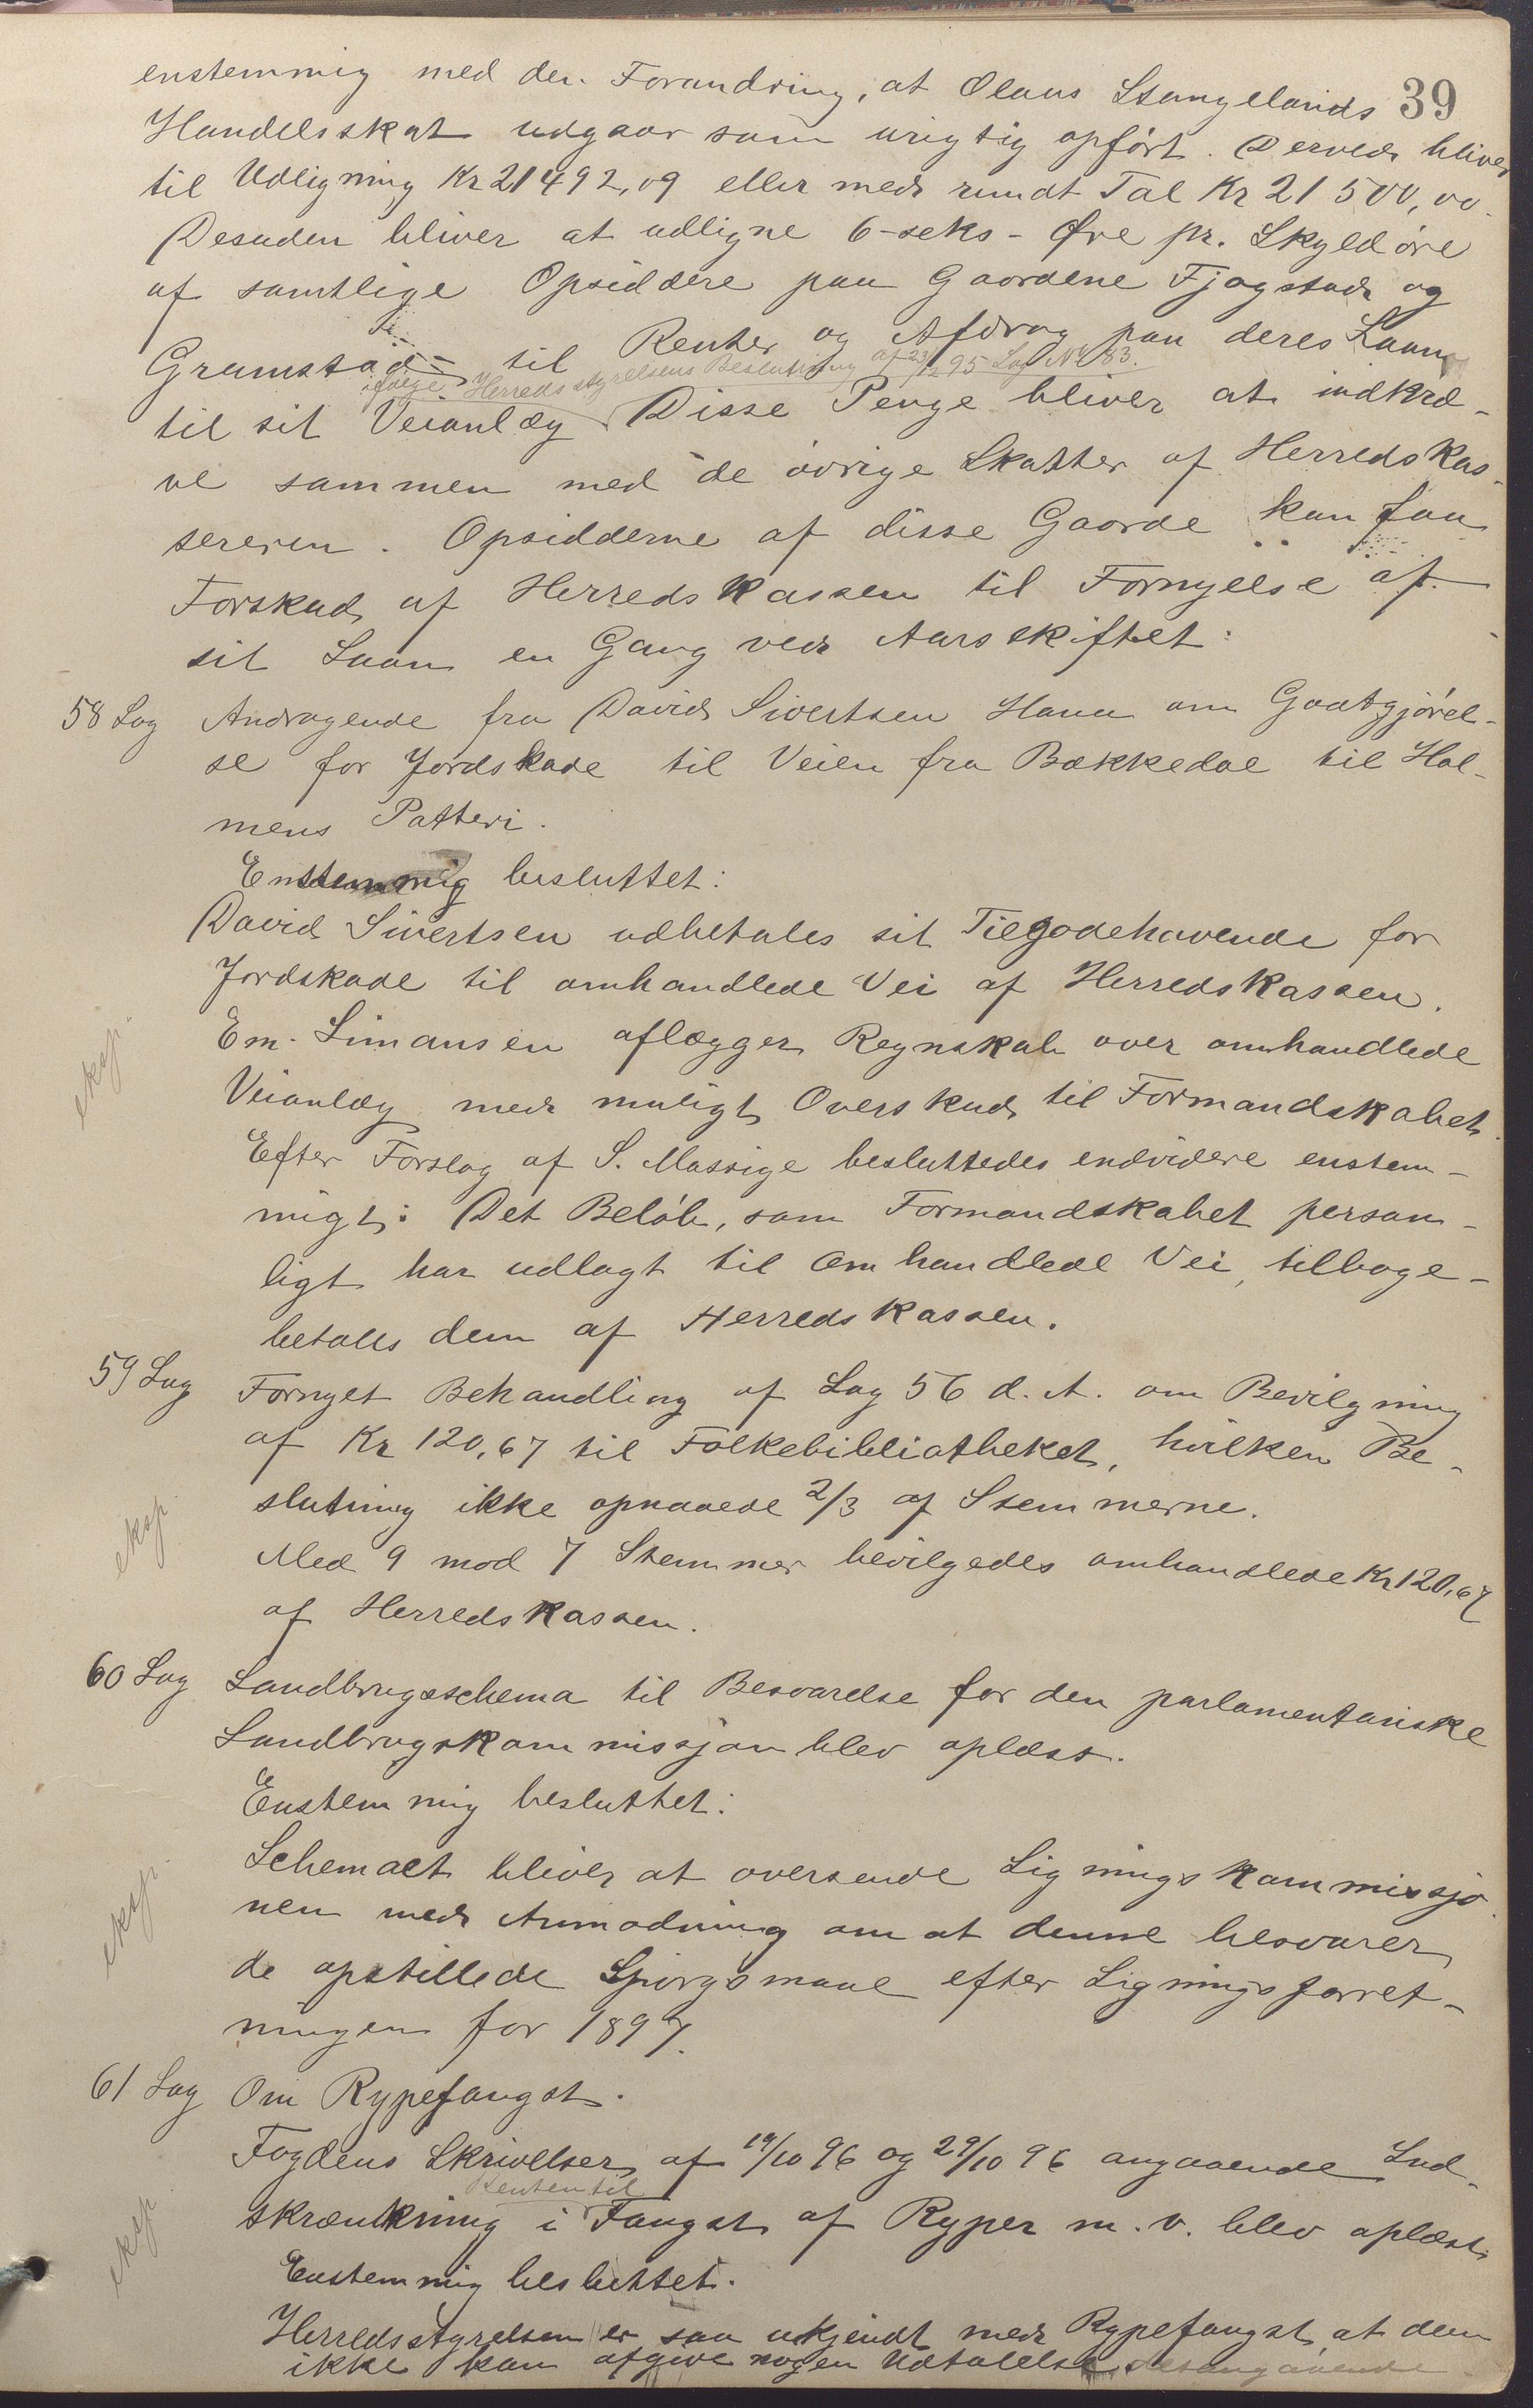 39
enstemmig med den Forandring, at Olaus Stangelands
Handelsskat udgaar som urigtig opført. Derved bliver
til Udligning Kr 21492,09 eller med rundt Tal Kr 21500,00.
Desuden bliver at udligne 6-seks- Øre pr. Skyldøre
af samtlige Opsiddere paa Gaardene Fjogstad og
Gramstad til Renter og Afdrag paa deres Laan
ifølge Herredsstyrelsens Beslutning af 23/12 95 Sag No 83.
til sit Veianlæg. Disse Penge bliver at indkræ-
ve sammen med de øvrige Skatter af Herredskas-
sereren. Opsidderne af disse Gaarde kan faa
Forskud af Herredskassen til Fornyelse af
sit Laan en Gang ved Aarsskiftet.
58 Sag Andragende fra David Sivertsen Hana om Godtgjørel-
se for Jordskade til Veien fra Bækkedal til Hol-
mens Potteri.
Enstemmig besluttet:
David Sivertsen udbetales sit Tilgodehavende for
Jordskade til omhandlede Vei af Herredskassen.
eksp.
Em. Simonsen aflægger Regnskab over omhandlede
Veianlæg med muligt Overskud til Formandskabet.
Efter Forslag af S. Massige besluttedes endvidere enstem-
migt: Det Beløb, som Formandskabet person-
ligt har udlagt til omhandlede Vei, tilbage-
betales dem af Herredskassen.
59 Sag Fornyet Behandling af Sag 56 d. A. om Bevilgning
af Kr 120,67 til Folkebibliotheket, hvilken Be-
slutning ikke opnaaede 2/3 af Stemmerne.
eksp.
Med 9 mod 7 Stemmer bevilgedes omhandlede Kr 120,67
af Herredskassen.
60 Sag Landbrugsschema til Besvarelse for den parlamentariske
Landbrugskommissjon blev oplæst.
Enstemmig besluttet:
Schemaet bliver at oversende Ligningskommissjo
eksp.
nen med Anmodning om at denne besvarer
de opstillede Spørgsmaal efter Ligningsforret-
ningen for 1897.
61 Sag Om Rypefangst.
Fogdens Skrivelser af 19/10 96 og 29/10 96 angaaende Ind-
Retten til
skrænkning i Fangst af Ryper m. v. blev oplæst.
eksp.
Enstemmig besluttet.
Herredsstyrelsen er saa ukjendt med Rypefangst, at den
ikke kan afgive nogen Udtalelse desangaaende